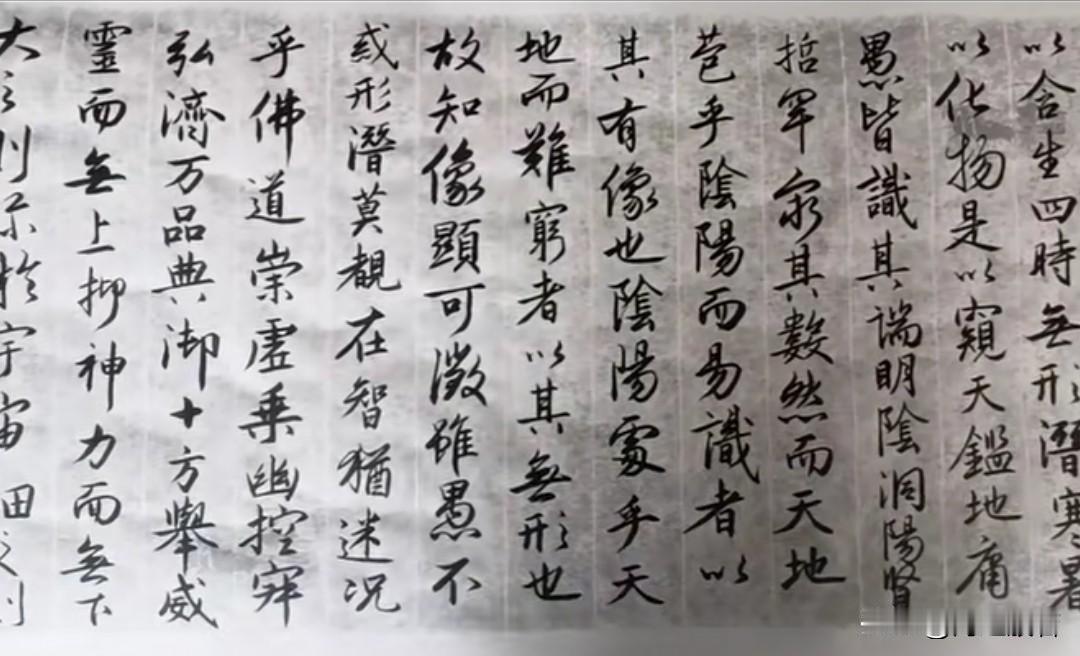 以含生四時無形潛寒暑
以化物是以窺天鑑地庸
愚皆識其端明陰洞陽賢
哲罕窮其數然而天地
苞乎陰陽而易識者以
其有像也陰陽處乎天
地而難窮者以其無形也
故知像顯可徵雖愚不
惑形潛莫覩在智猶迷况
乎佛道崇虛乗幽控寂
弘濟万品典御十方舉威
靈而無上抑神力而無下
大之則弥於宇宙細之則